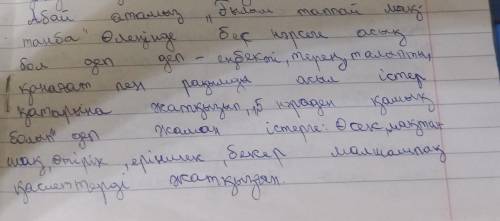 Абай атамыз "Ғылым таппай мақ
танба" Өлеңінде бес нәрсеге асық
бол деп деп - еңбекті, терең талаптың,
қанағат пен рақымды асыл істер
қатарына жатқызып, "5 нәрседен қашық
болып" деп жаман істерге: Өсек, мақтан
шақ, өтірік, еріншек, бекер малшашпақ
қасиеттерді жатқызған.